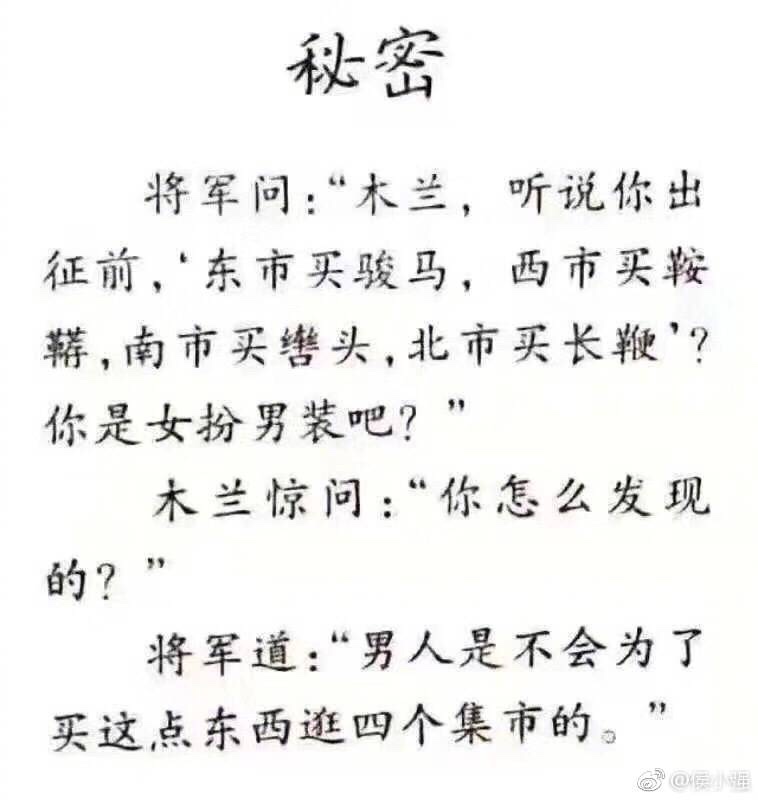 秘密
将军问：“木兰，听说你出
征前，‘东市买骏马，西市买鞍
鞯，南市买辔头，北市买长鞭’？
你是女扮男装吧？”
木兰惊问：“你怎么发现
的？”
将军道：“男人是不会为了
买这点东西逛四个集市的。”
@侯小强